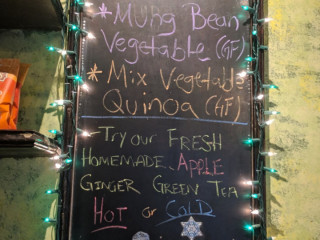 * Mung Bean
Vegetable (GF)
* Mix Vegetable
Quinoa (GF)
Try our FRESH
HOMEMADE APPLE
GINGER GREEN TEA
HOT or COLD